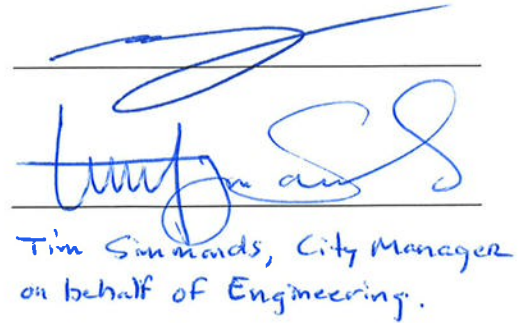 Tim Simmonds, City Manager
on behalf of Engineering.